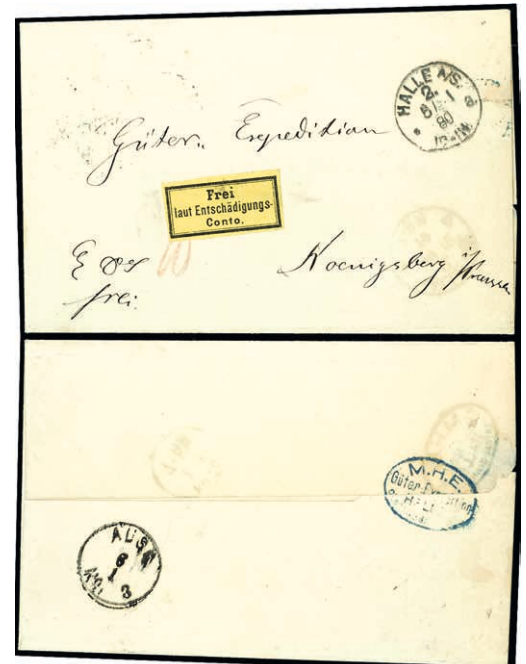 HALLE A/S.
2.
a.
80
Güter Expedition
Frei
laut Entschädigungs-
Conto.
frei.
Koenigsberg i/Preussen
M.H.E.
Güter-Expedition
AUSG
6
1
3